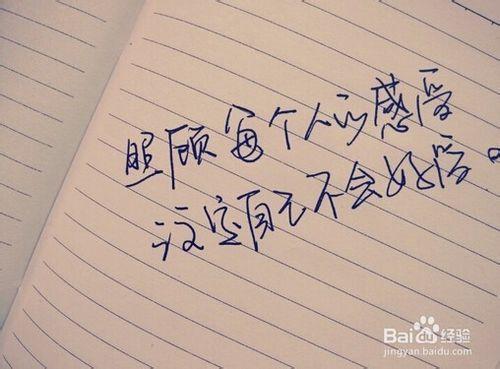 照顾每个人的感受
注定自己不会好受。
Bai du 经验
jingyan.baidu.com